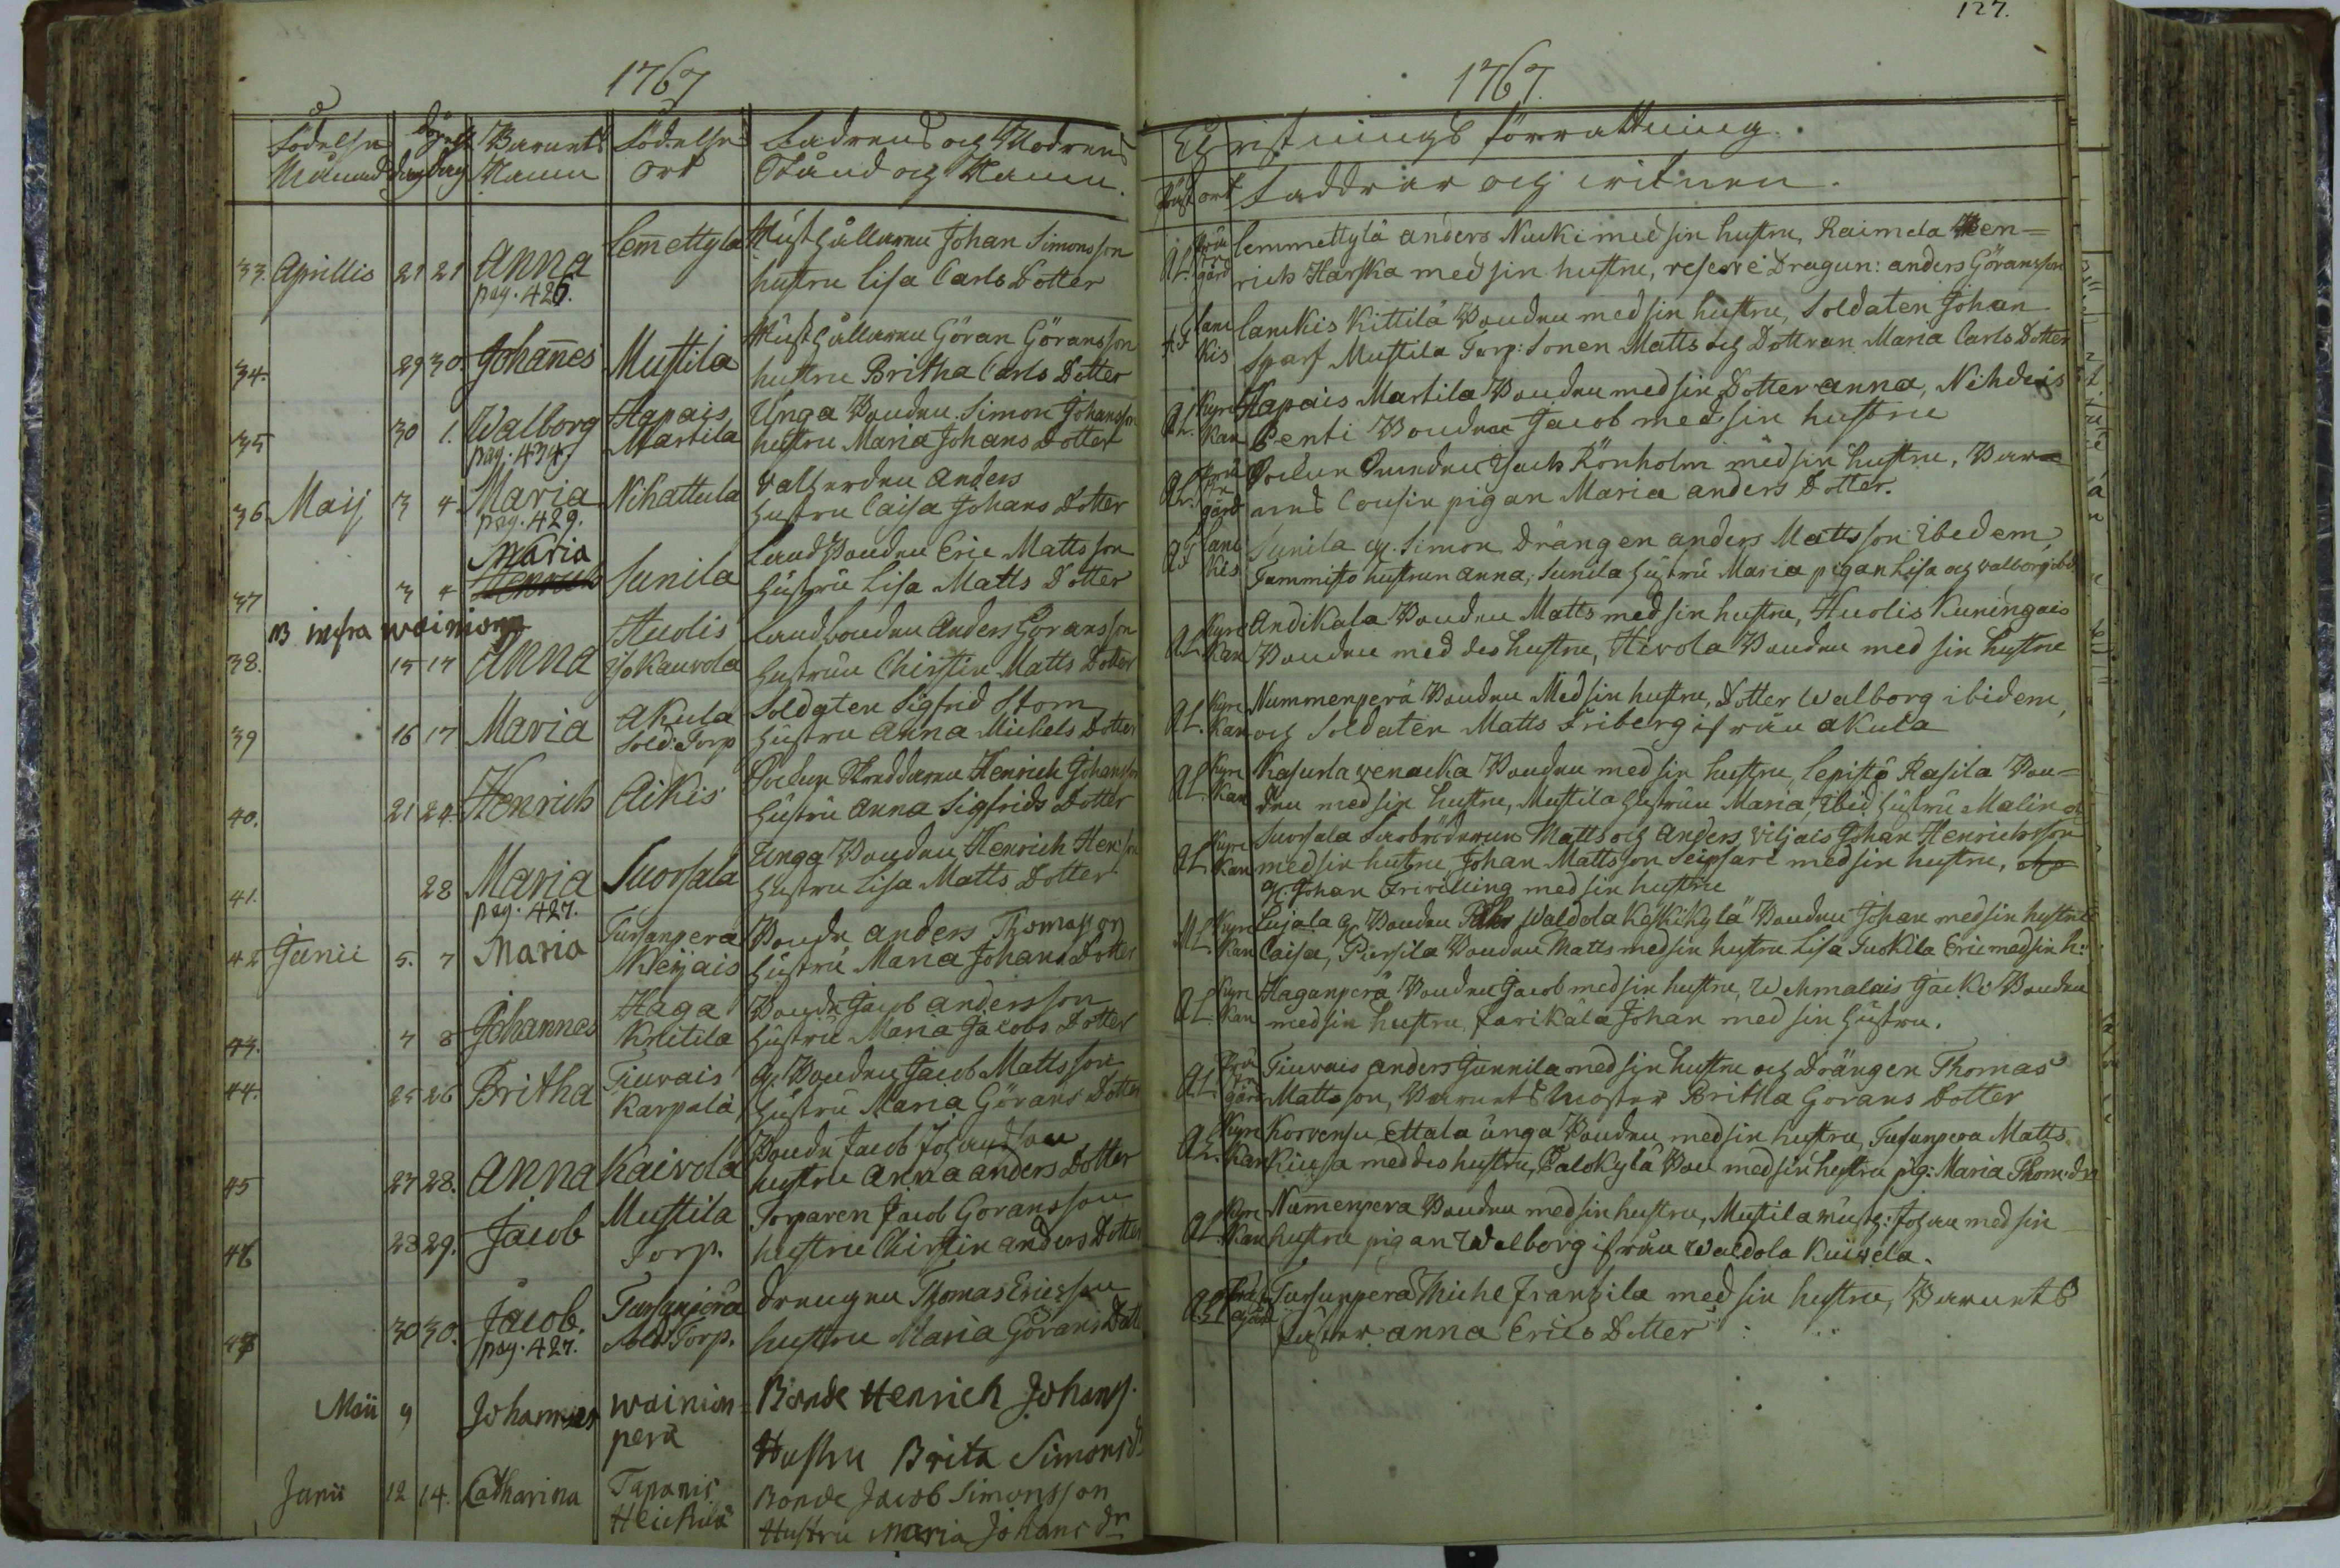 1767
Födelse Döpelse Barnets Födelse Fadrens och Modrens
Månad dag dag Namn ort Stånd och Namn.
33. Aprillis 21 21 Anna Lem̄ettylä Rusthållaren Johan Simonsson
pag. 426. hustru Lisa Carls Dotter
34. 29 30. Johan̄es Mustila Rusthållaren Göran Göransson
hustru Britha Carls Dotter
35 30 1. Walborg Hapais Unga Bonden Simon Johansson
pag. 434. Martila hustru Maria Johans Dotter
36 Maij 3 4 Maria Nihattula Vallherden Anders
pag. 429. hustru Caisa Johans Dotter
Maria
37 3 4 Henrich Junila Landbonden Eric Mattsson
hustru Lisa Matts Dotter
NB infra wainionp
38. 15 17 Anna Huolis Landbonden Anders Göransson
Jokauvola hustrun Chirstin Matts Dotter
39 16 17 Maria Akula Soldaten Sigfrid Storm
Sold: Torp hustru Anna Michels Dotter
40. 21 24. Henrich Aikis Sockne Skreddaren Henrich Johansson
hustru Anna Sigfrids Dotter
41. 28 Maria Suorsala Unga Bonden Henrich Hen:son
pag. 427. hustru Lisa Matts Dotter
42 Junii 5. 7 Maria Tursanperä Bonde Anders Thomasson
Kerjais hustru Maria Johans Dotter
43. 7 8 Johannes Haga Bonde Jacob Andersson
Krittila hustru Maria Jacobs Dotter
44. 25 26 Britha Tiuvais g. Bonden Jacob Mattsson
Karpala hustru Maria Görans Dotter
45 27 28. Anna Kaivola Bonde Jacob Johansson
hustru Anna Anders Dotter
46 28 29. Jacob Mustila Torparen Jacob Göransson
Torp. hustru Chirstin Anders Dotter
47 30 30. Jacob. Tursanperä Drengen Thomas Ericsson
pag. 427. Sold Torp. hustru Maria Görans Dott
Maii 9 Johannes wainion= Bonde Henrich Johanss.
perä Hustru Brita Simonsd
Junii 12 14. Catharina Tapanis Bonde Jacob Simonsson
Heickilä Hustru Maria Johans dr
127.
1767.
Christnings förrättning.
Präst ort Faddrar och witnen.
AL. Prästgård Lemmettylä Anders Nucki med sin hustru, Raimela Hen=
rich Harska med sin hustru, reserve Dragun: Anders Göransson
AF Lanckis Lanckis Kittilä Bonden med sin hustru, Soldaten Johan
Sparf Mustila Torp: Sonen Matts och Dottren Maria Carls Dotter
AL. Kyrckan Hapais Martila Bonden med sin Dotter Anna, Nihduis
Penti Bonden Jacob med sin hustru
AL. Prästgård Rönholm med sin hustru, Bar=
nets Cousin pigan Maria Anders Dotter.
AF Lanckis Junila g. Simon Drängen Anders Mattsson ibedem,
Tammisto hustrun Anna, Junila hustru Maria pigan Lisa och Walborg ibd
AL Kyrckan Andikala Bonden Matts med sin hustru, Huolis Kuningais
Bonden med des hustru, Hivola Bonden med sin hustru
AL. Kyrckan Nummenperä Bonden Med sin hustru, Dotter Walborg ibidem,
och Soldaten Matts Friberg ifrån Akula
AL. Kyrckan Kasurla wenacka Bonden med sin hustru, Lepistö Rasila Bon=
den med sin hustru, Mustila hustrun Maria, ibid hustru Malin
AL. Kyrckan Suorsala Matts och Anders, Viljais Johan Henrichsson
med sin hustru, Johan Mattsson Seipsari med sin hustru,
g. Johan Frivilling med sin hustru
AL. Kyrckan Lujala g. Bonden Waldola Keskikylä Bonden Johan med sin hustru
Caisa, Piirsila Bonden Matts med sin hustru Lisa Tuokila Eric med sin h:
AL. Kyrckan Haganperä Bonden Jacob med sin hustru, Wehmalais Jacki Bonden
med sin hustru, Farikala Johan med sin hustru.
AL. Prästgård Tiuvais Anders Junnila med sin hustru och Drängen Thomas
Matts son, Barnets Moster Britha Görans Dotter
AL. Kyrckan Korvensu Ettala unga Bonden med sin hustru, Tursanpera Matts
Kiusa med des hustru, Talokylä Bon med sin hustru pig: Maria Thom: dr
AL. Kyrckan Num̄enpera Bonden med sin hustru, Mustila rusth: Johan med sin
hustru pigan Walborg ifrån Waldola Kuisela.
AL Prästgård Tursunperä Michel Frantzila med sin hustru, Barnets
Faster Anna Erics Dotter